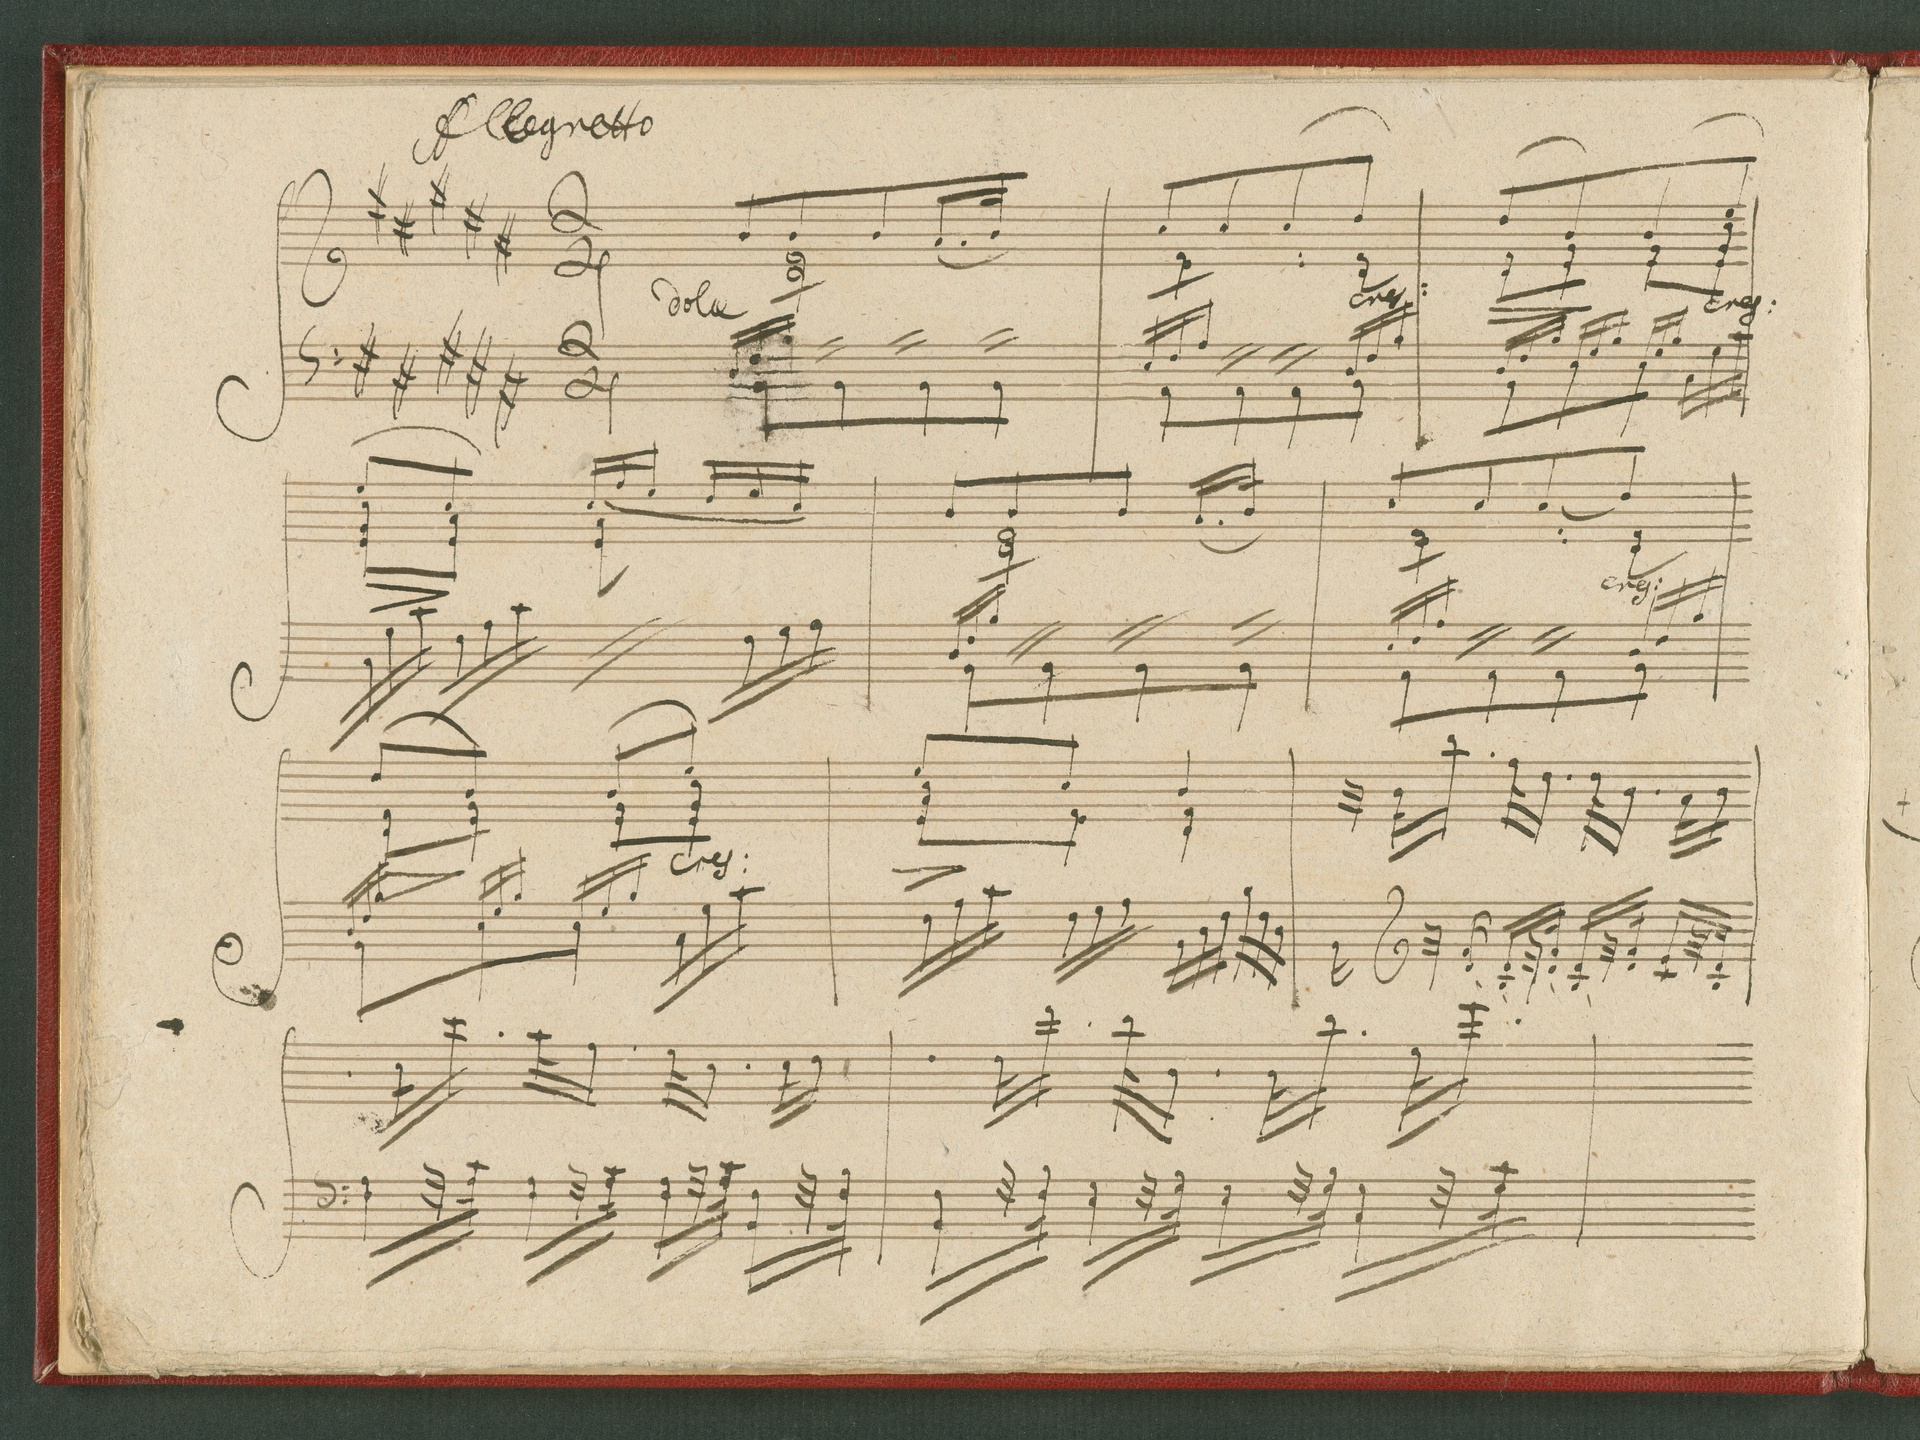 Allegretto
2
4
dolce
cres:
cres:
2
4
cres:
cres: